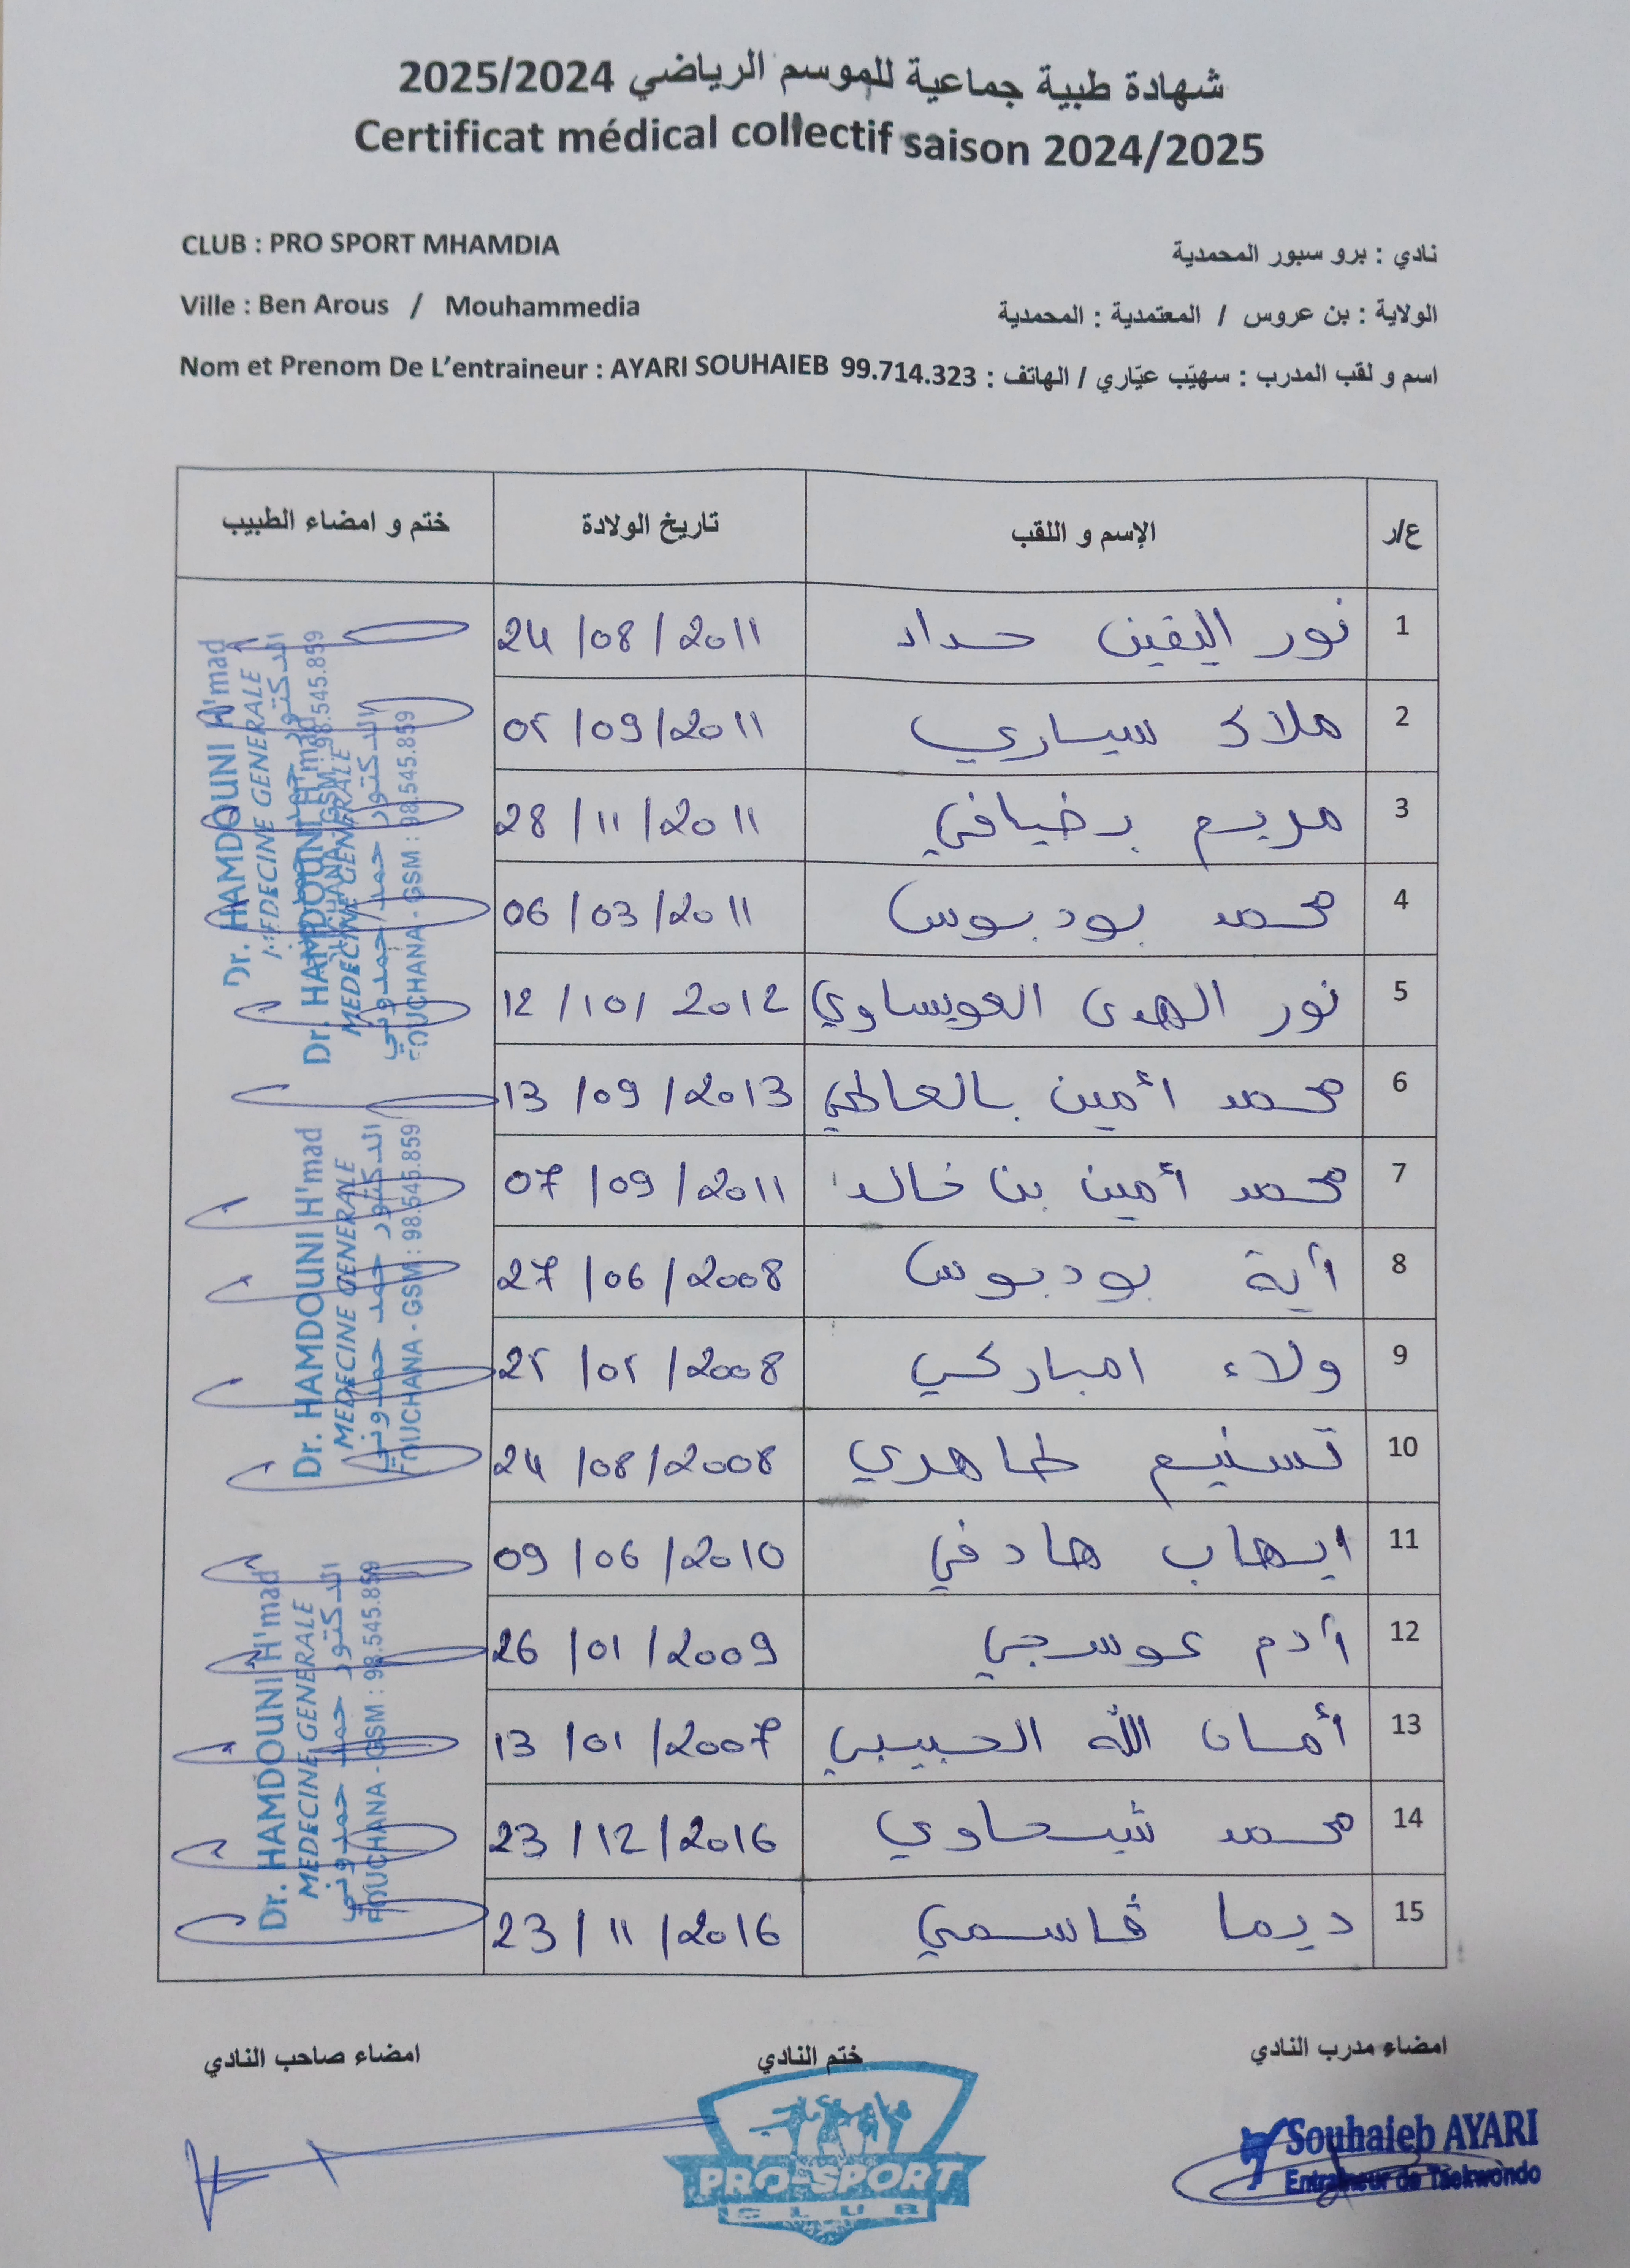 شهادة طبية جماعية للموسم الرياضي 2025/2024
Certificat médical collectif saison 2024/2025
CLUB : PRO SPORT MHAMDIA
نادي : برو سبور المحمدية
Ville : Ben Arous / Mouhammedia
الولاية : بن عروس / المعتمدية : المحمدية
Nom et Prenom De L'entraineur : AYARI SOUHAIEB 99.714.323
اسم و لقب المدرب : سهيّب عيّاري / الهاتف :
ع/ر الإسم و اللقب تاريخ الولادة ختم و امضاء الطبيب
1 نور اليقين حداد 24/08/2011
2 ملاك سياري 02/09/2011
3 مريم رضيافي 28/11/2011
4 محمد بودبوس 06/03/2011
5 نور الهدى العويساوي 12/10/2012
6 محمد أمين 13/09/2013
7 محمد أمين بن خالد 07/09/2011
8 آية بودبوس 27/06/2008
9 ولاء امباركي 22/02/2008
10 تسنيم طاهري 24/08/2008
11 ايهاب هادفي 09/06/2010
12 آدم عوسجي 26/01/2009
13 أمان الله الحبيبي 13/01/2007
14 محمد شيحاوي 23/12/2016
15 ديما قاسمي 23/11/2016
Dr. HAMDOUNI H'mad
MEDECINE GENERALE
الدكتور حمد حمدوني
FOUCHANA - GSM : 98.545.859
Dr. HAMDOUNI H'mad
MEDECINE GENERALE
الدكتور حمد حمدوني
FOUCHANA - GSM : 98.545.859
Dr. HAMDOUNI H'mad
MEDECINE GENERALE
الدكتور حمد حمدوني
FOUCHANA - GSM : 98.545.859
Dr. HAMDOUNI H'mad
MEDECINE GENERALE
الدكتور حمد حمدوني
FOUCHANA - GSM : 98.545.859
امضاء مدرب النادي
ختم النادي
امضاء صاحب النادي
Souhaieb AYARI
Entraineur de Taekwondo
PRO-SPORT
CLUB